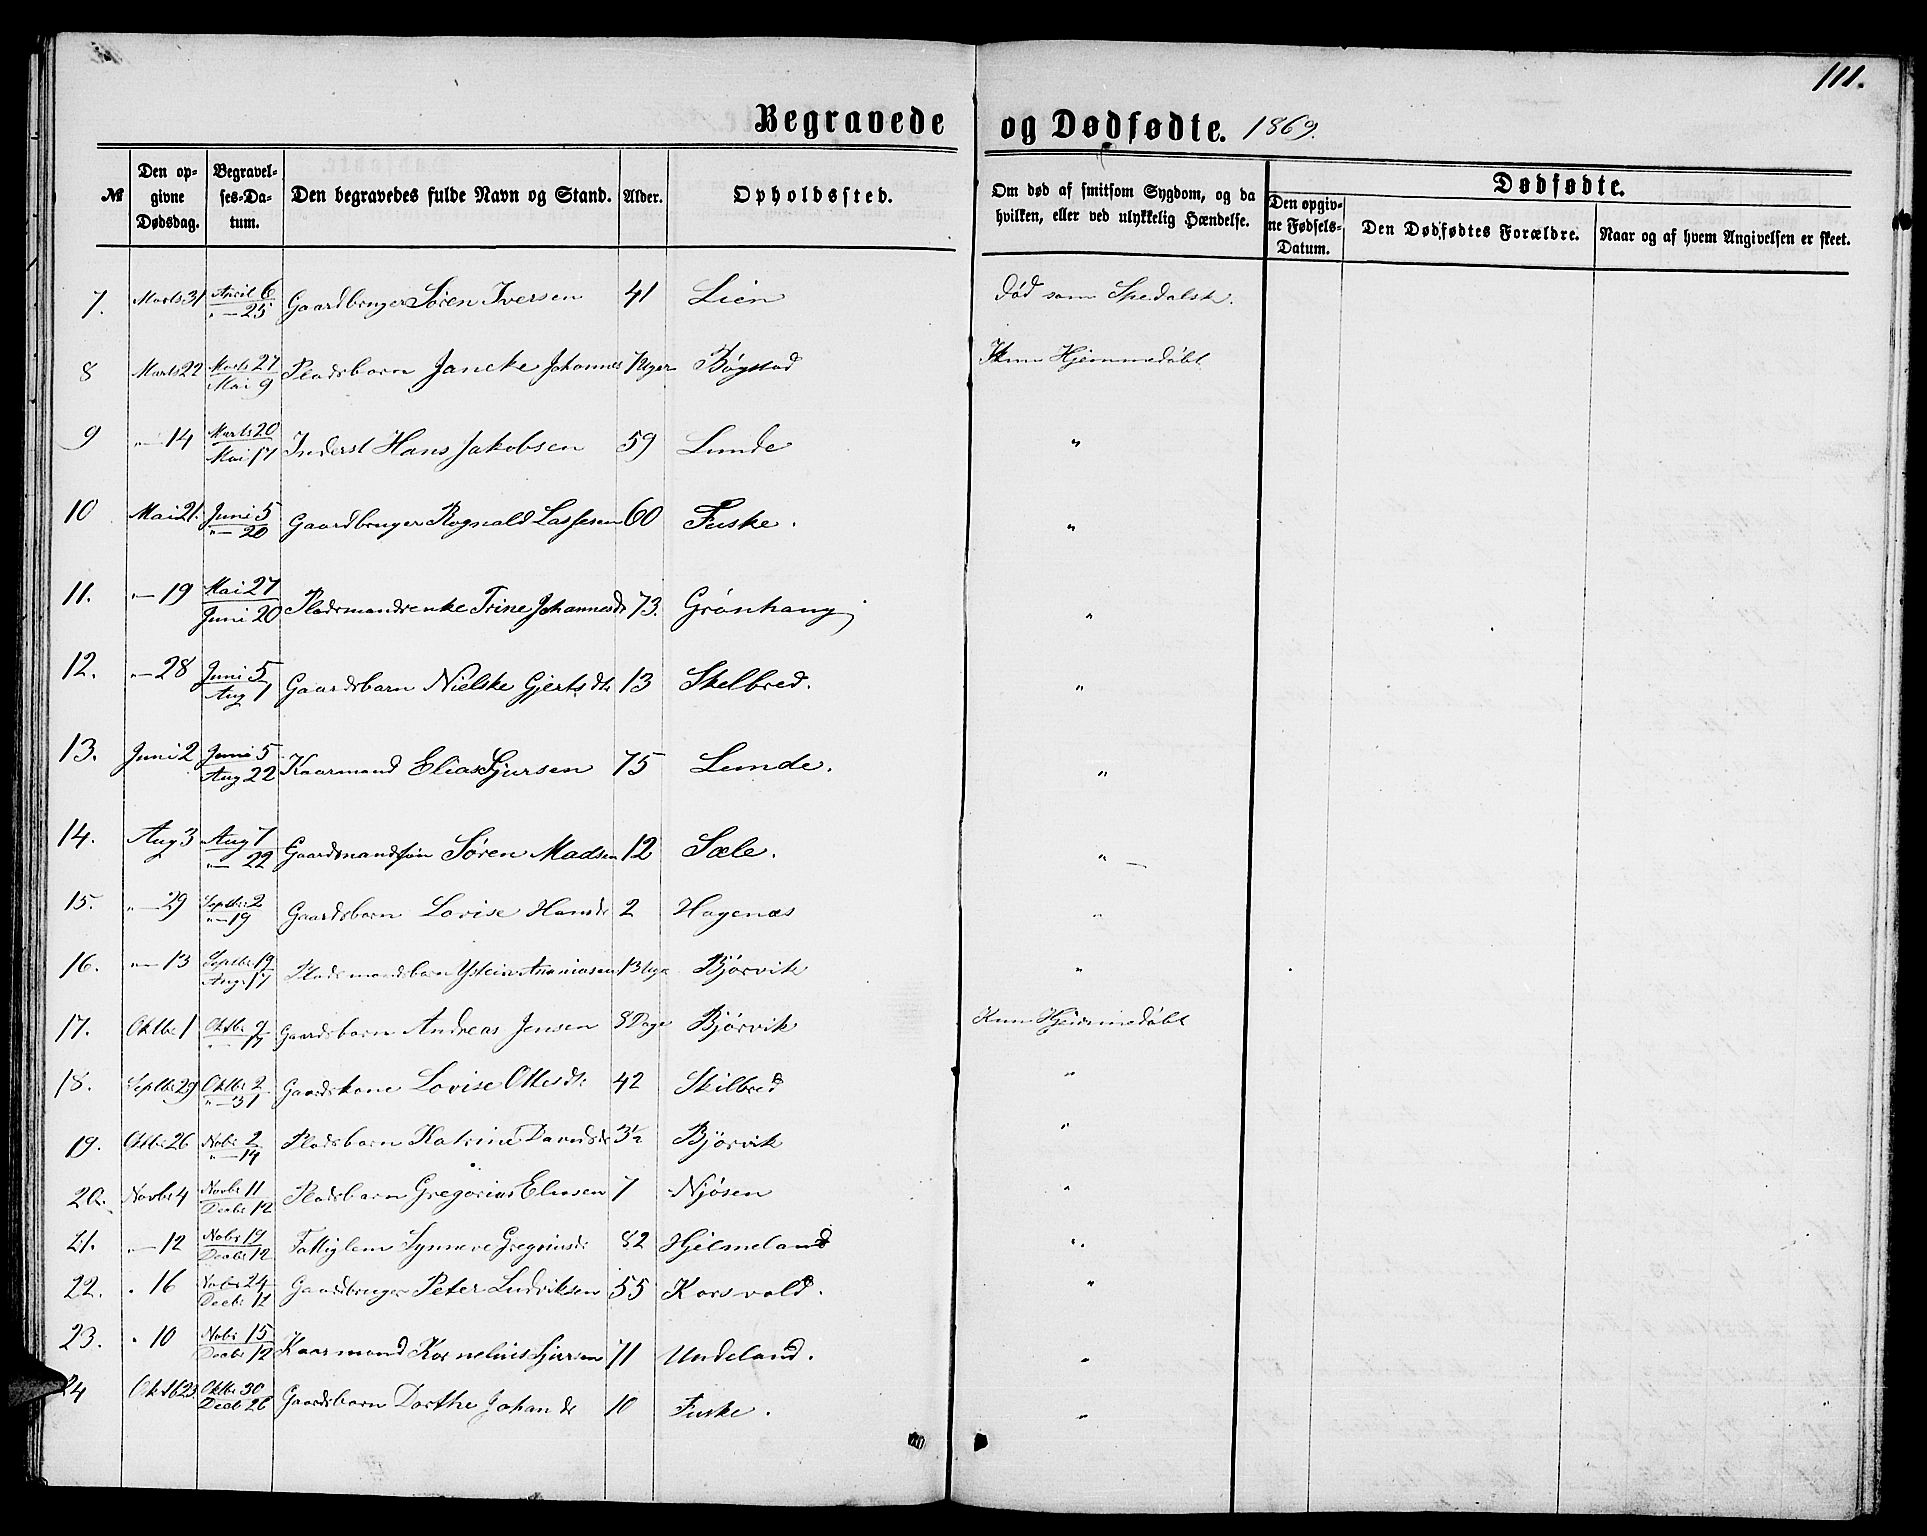 111.
Begravede og Dødfødte. 1869.
№ Den opgivne Dødsdag. Begravelses-Datum. Den begravedes fulde Navn og Stand. Alder. Opholdssted. Om død af smitsom Sygdom, og da hvilken, eller ved ulykkelig Hændelse. Dødfødte.
Den opgivne Fødsels-Datum. Den Dødfødtes Forældre. Naar og af hvem Angivelsen er skeet.
7. Marts 31 April 6 "— 25 Gaardbruger Søren Iversen 41 Lien Død som Spedalsk.
8 Marts 22 Marts 27 Mai 9 Pladsbarn Jancke Johannes 7 Uger Bøgstad Kun Hjemmedøbt
9 "— 14 Marts 20 Mai 17 Inderst Hans Jakobsen 59 Lunde "
10 Mai 21. Juni 5 "— 20 Gaardbruger Rognald Lassesen 60 Fuske. "
11. "— 19 Mai 27 Juni 20 Pladsmandsenke Trine Johannesdr 73. Grønhaug "
12. "— 28 Juni 5 Aug 1 Gaardsbarn Nielske Gjertsdr 13 Skelbred. "
13. Juni 2 Juni 5 Aug 22 Kaarmand Elias Sjursen 75 Lunde. "
14. Aug 3 Aug 7 "— 22 Gaardmandssøn Søren Madsen 12 Sæle. "
15. "— 29 Septbr 2 "— 19 Gaardsbarn Lovise Hansdr 2 Hagenæs "
16. "— 13 Septbr 19 Aug. 17 Pladsmandsbarn Ananiasen 13 Uge Bjørvik "
17. Oktbr 1 Oktbr 9 "— 17 Gaardsbarn Andreas Jensen 8 Dage Bjørvik Kun Hjemmedøbt
18. Septbr 29 Oktbr 2 "— 31 Gaardskone Lovise Ottesdr 42 Skilbred "
19. Oktbr 26 Nobr 2 "— 14 Pladsbarn Katrine Davidsdr 3½ Bjørvik "
20. Novbr 4 Novbr 11 Decbr 12 Pladsbarn Gregorius Eliasen 7 Njøsen "
21. "— 12 Nobr 17 Decbr 12 Fattiglem Synneve Gregoriusdr 82 Hjelmeland "
22. " 16 Nobr 24 Decbr 12 Gaardbruger Peter Ludviksen 55 Korsvold. "
23. " 10 Nobr 15 Decbr 12 Kaarmand Kornelius Sjursen 71 Undeland. "
24 Oktb 23 Oktbr 30 Decbr 26 Gaardsbarn Dorthe Johansdr 10 Fuske. "